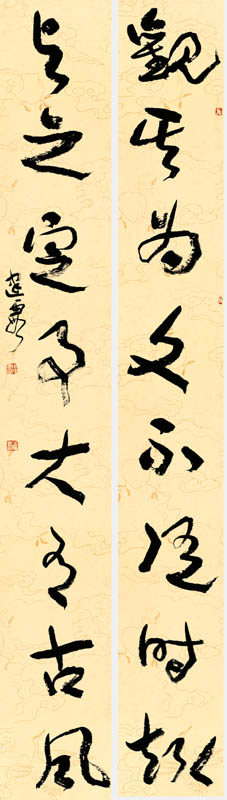 觀其為文不隨時趣
與之定事大有古風